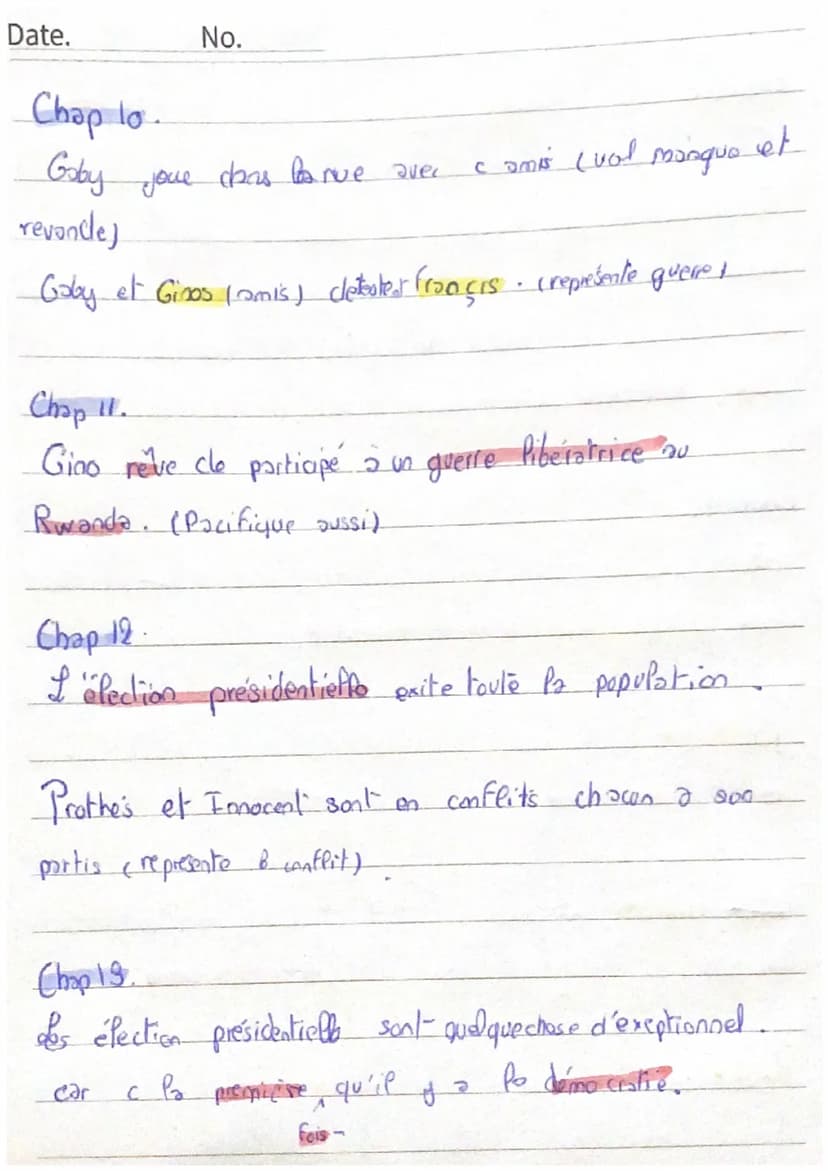 Date. No.
Chap 10.
Gaby joue dans la rue avec c amis (vol mangue et
revande)
Gaby et Ginos (amis) detester françis. (représente guerre)
Chap 11.
Gino rêve de participé à un guerre libératrice au
Rwanda. (Pacifique aussi)
Chap 12.
L'élection présidentielle exite toute la population.
Prothés et Innocent sont en conflits chacun a son
partis (représente le conflit).
Chap 13.
Les élection présidentielle sont quelque chose d'exeptionnel.
car c la première qu'il y a la démocratie.
fois